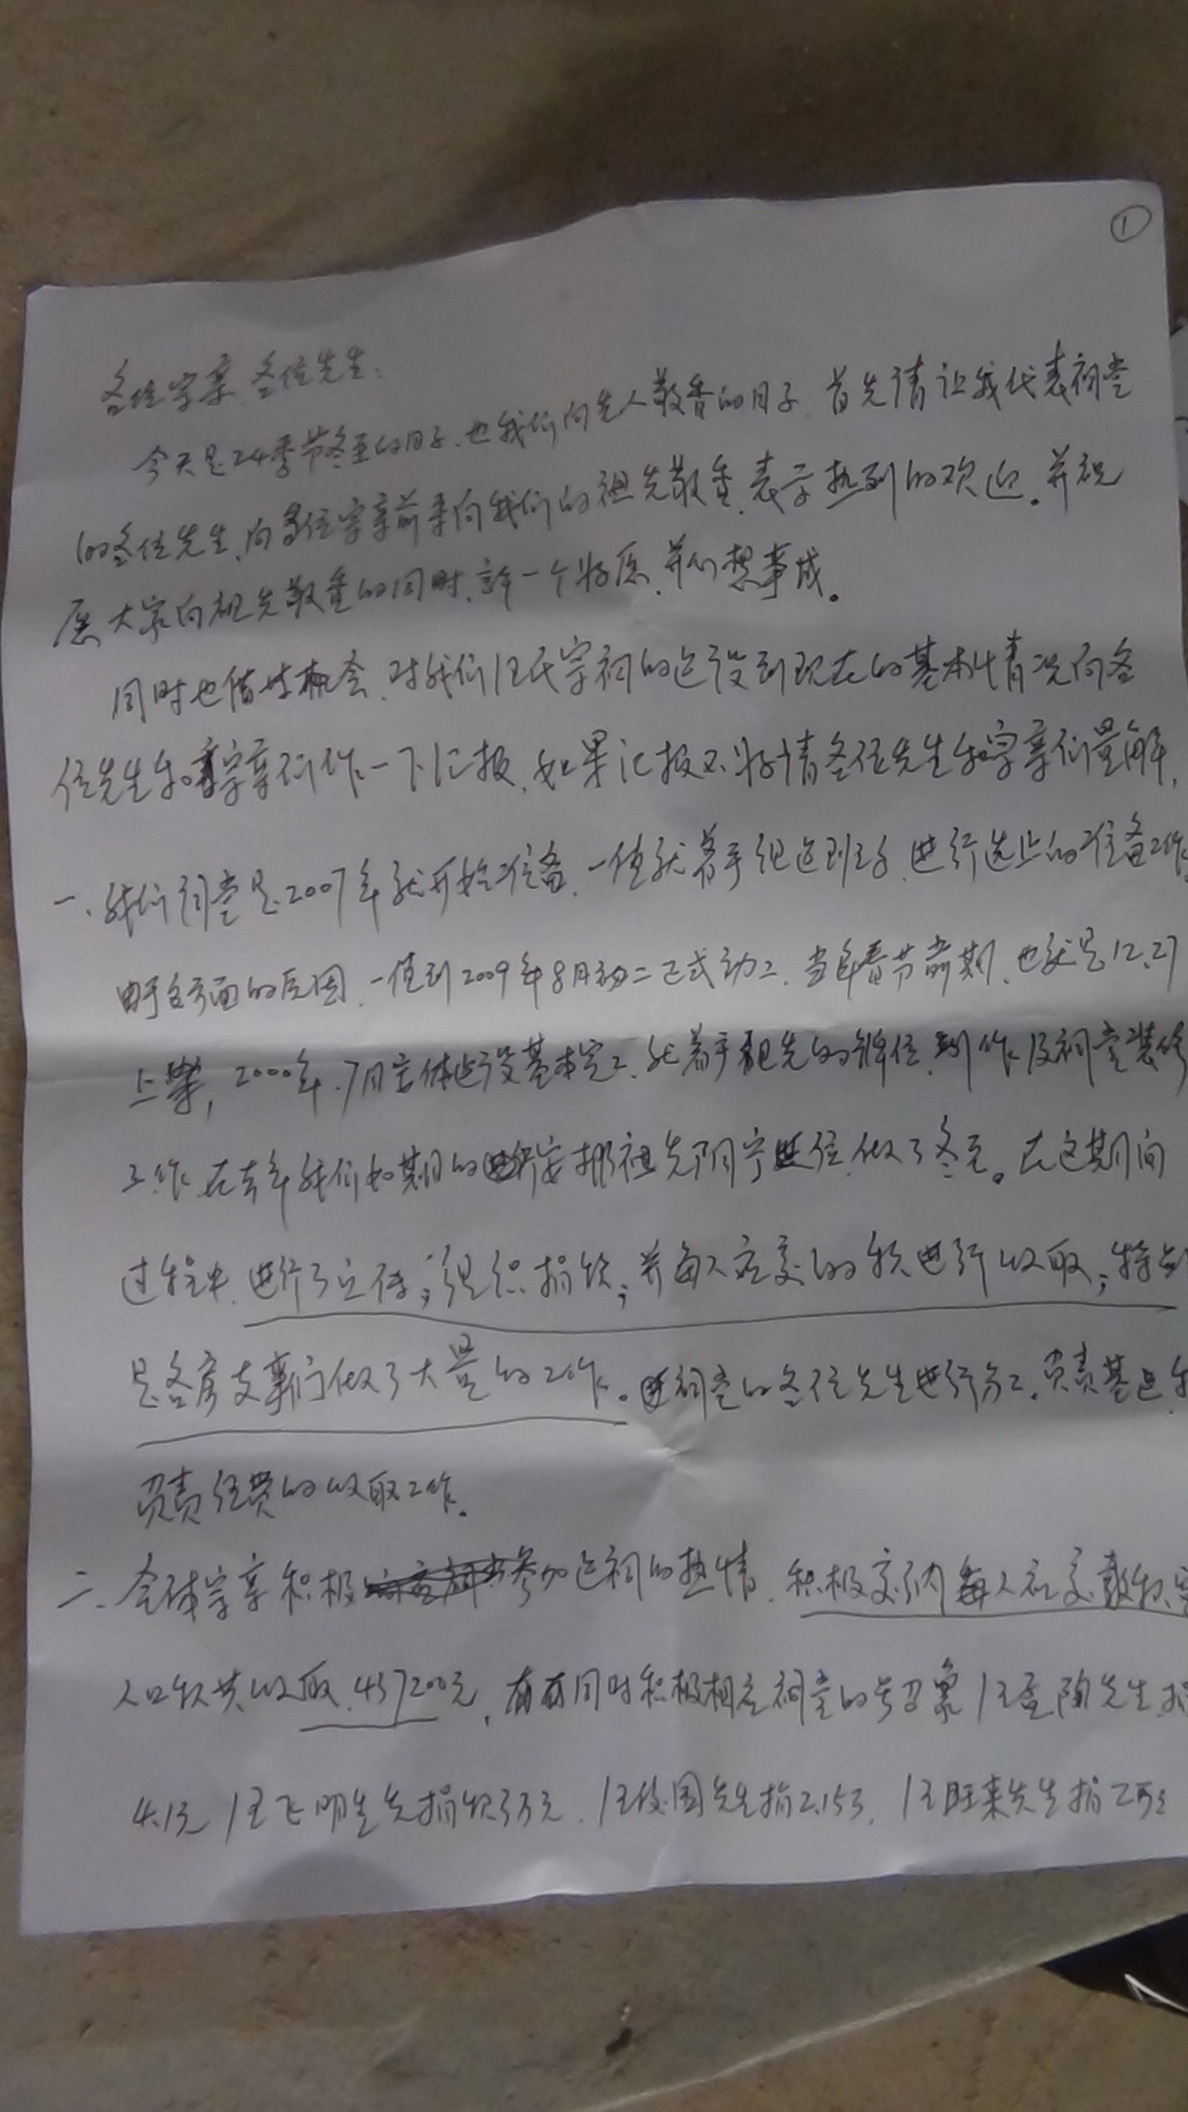 ①
各位宗亲、各位先生：
今天是24季节冬至的日子、也我们向先人敬香的日子、首先请让我代表祠堂
的各位先生、向各位宗亲前来向我们的祖先敬香、表示热列的欢迎。并祝
愿大家向祖先敬香的同时、许一个好愿、并心想事成。
同时也借此机会、对我们汪氏宗祠的建设到现在的基本情况向各
位先生和宗亲们作一下汇报、如果汇报不好请各位先生和宗亲们量解，
一、我们祠堂是2007年就开始准备、一值就着手组建班子、进行选址的准备工作
由于各方面的原因、一值到2009年8月初二正式动工、当年春节前期、也就是12.27
上梁，2000年.7月主体建设基本完工、就着手祖先的牌位制作及祠堂装修
工作、在去年我们如期的安排祖先阴宁进位、做了冬至。在这期间
过程中、进行了宣传；组织捐款；并每人应交的款进行收取；特别
是各房支事们做了大量的工作。祠堂的各位先生进行分工、负责基建、
负责经费的收取工作。
二、全体宗亲积极参加建祠的热情、积极交纳每人应交款
人口款共收取.457200元，同时积极相应祠堂的号召 汪 先生
4.1元 汪飞明先生捐款3万元、汪 国先生捐2.15万、汪旺来先生捐2万元